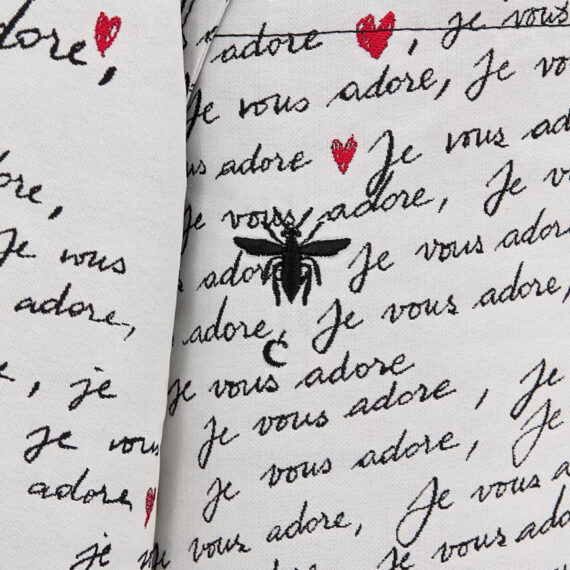 adore,
ore,
je vous
adore,
, je
je vous
adore
je
adore , je vous
je vous adore, Je vo
us adore Je vous ad
je vous adore, Je v
s adore Je vous adore
adore, Je vous adore,
je vous adore
je vous adore , Je
je vous adore, Je
Je vous a
vous adore,
adore, Je vous ador